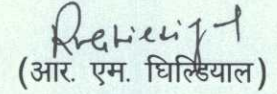 (आर. एम. घिल्डियाल)